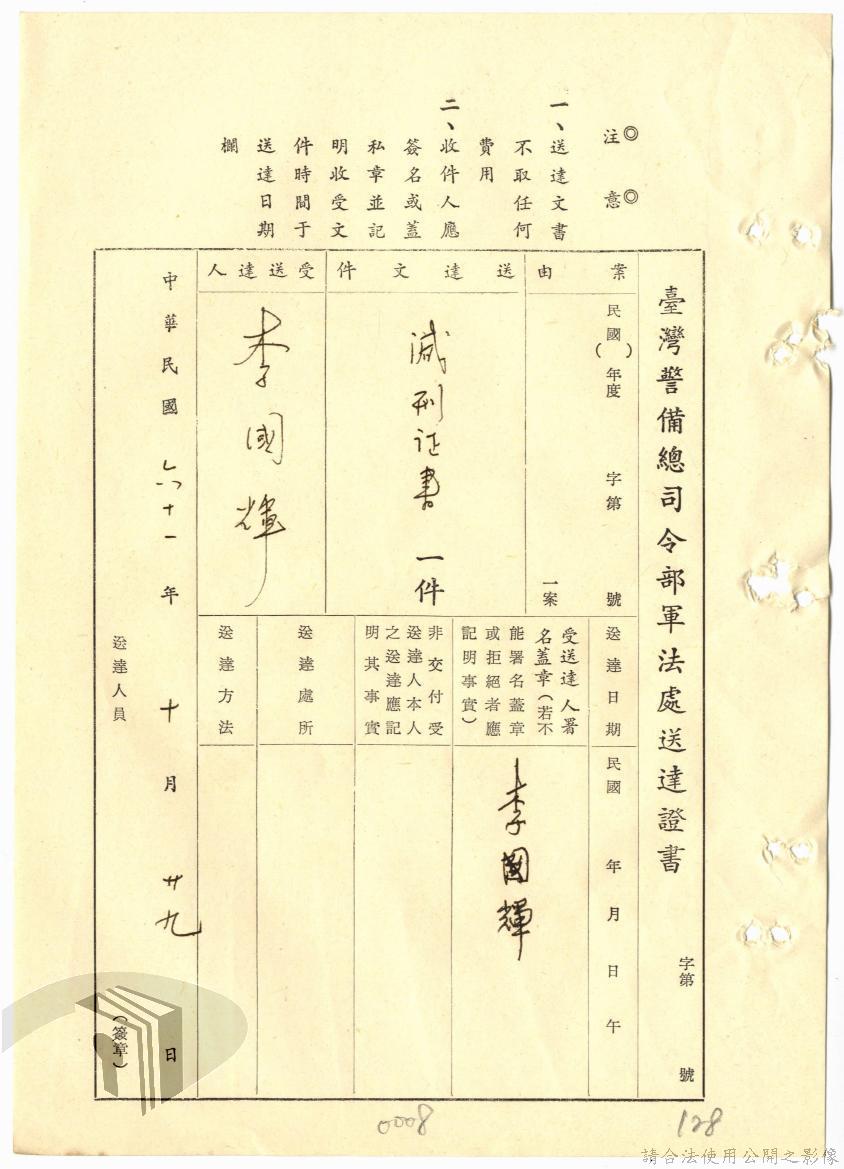 ◎注意◎
一、送達文書
不取任何
費用
二、收件人應
簽名或蓋
私章並記
明收受文
件時間于
送達日期
欄
臺灣警備總司令部軍法處送達證書
字第 號
案由
民國( )年度 字第 號
一案
送達文件
減刑证書 一件
受送達人
李國輝
送達日期
民國 年 月 日 午
受送達人署
名蓋章(若不
能署名蓋章
或拒絕者應
記明事實)
李國輝
非交付受
送達人本人
之送達應記
明其事實
送達處所
送達方法
中華民國 六十一 年 十 月 廿九 日
送達人員 (簽章)
0008
128
請合法使用公開之影像